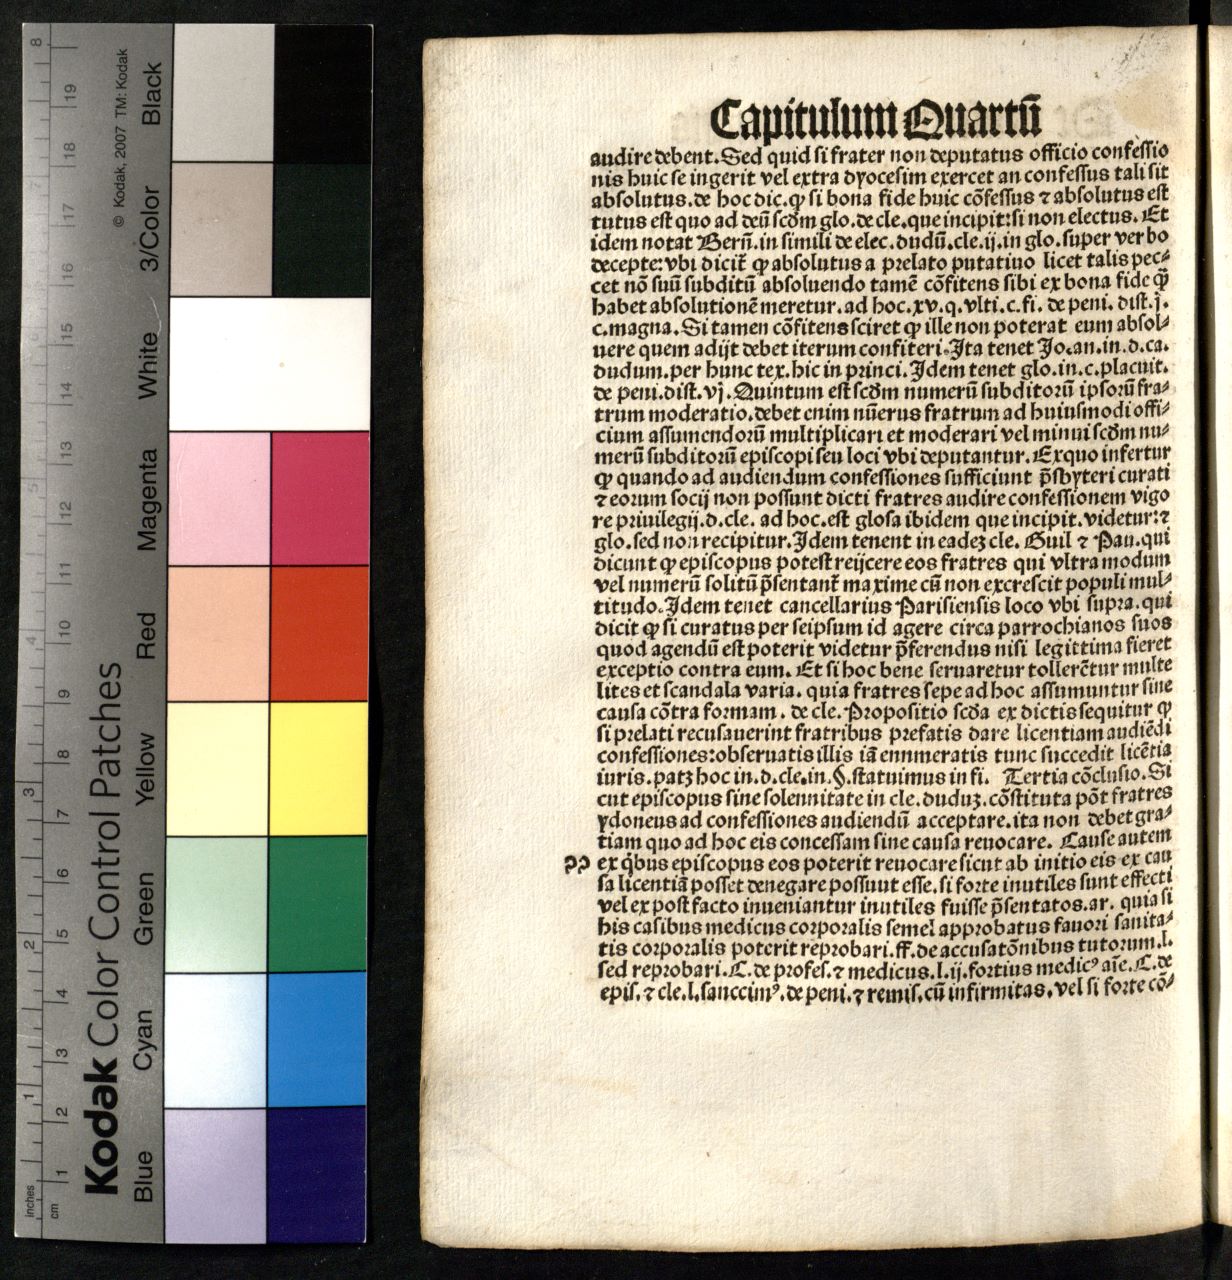 Kodak Color Control Patches
© Kodak, 2007 TM: Kodak
inches
cm
Blue Cyan Green Yellow Red Magenta White 3/Color Black
1 2 3 4 5 6 7 8
1 2 3 4 5 6 7 8 9 10 11 12 13 14 15 16 17 18 19
Capitulum Quartū
audire debent. Sed quid si frater non deputatus officio confessio
nis huic se ingerit vel extra dyocesim exercet an confessus tali sit
absolutus. de hoc dic. ꝙ si bona fide huic cōfessus ⁊ absolutus est
tutus est quo ad deū scdm glo. de cle. que incipit: si non electus. Et
idem notat Berñ. in simili de elec. dudū. cle. ij. in glo. super verbo
decepte: vbi dicit̄ ꝙ absolutus a prelato putatiuo licet talis pec⸗
cet nō suū subditū absoluendo tamē cōfitens sibi ex bona fide ꝙ̄
habet absolutionē meretur. ad hoc. xv. q. vlti. c. fi. de peni. dist. j.
c. magna. Si tamen cōfitens sciret ꝙ ille non poterat eum absol⸗
uere quem adijt debet iterum confiteri. Ita tenet Jo. an. in. d. ca.
dudum. per hunc tex. hic in princi. Idem tenet glo. in. c. placuit.
de peni. dist. vj. Quintum est scdm numerū subditorū ipsorū fra⸗
trum moderatio. debet enim nūerus fratrum ad huiusmodi offi⸗
cium assumendorū multiplicari et moderari vel minui scdm nu⸗
merū subditorū episcopi seu loci vbi deputantur. Ex quo infertur
ꝙ quando ad audiendum confessiones sufficiunt p̄sbyteri curati
⁊ eorum socij non possunt dicti fratres audire confessionem vigo
re priuilegij. d. cle. ad hoc. est glosa ibidem que incipit. videtur: ⁊
glo. sed non recipitur. Idem tenent in eadeȝ cle. Guil ⁊ Pau. qui
dicunt ꝙ episcopus potest reijcere eos fratres qui vltra modum
vel numerū solitū p̄sentant̄ maxime cū non excrescit populi mul⸗
titudo. Idem tenet cancellarius Parisiensis loco vbi supra. qui
dicit ꝙ si curatus per seipsum id agere circa parrochianos suos
quod agendū est poterit videtur p̄ferendus nisi legittima fieret
exceptio contra eum. Et si hoc bene seruaretur tollerētur multe
lites et scandala varia. quia fratres sepe ad hoc assumuntur sine
causa cōtra formam. de cle. Propositio scda ex dictis sequitur ꝙ
si prelati recusauerint fratribus prefatis dare licentiam audiēdi
confessiones: obseruatis illis iā ennmeratis tunc succedit licētia
iuris. patȝ hoc in. d. cle. in. §. statuimus in fi. Tertia cōclusio. Si
cut episcopus sine solennitate in cle. duduȝ. cōstituta pōt fratres
ydoneus ad confessiones audiendū acceptare. ita non debet gra⸗
tiam quo ad hoc eis concessam sine causa reuocare. Cause autem
ex q̇bus episcopus eos poterit reuocare sicut ab initio eis ex cau
sa licentiā posset denegare possuut esse. si forte inutiles sunt effecti
vel ex post facto inueniantur inutiles fuisse p̄sentatos. ar. quia si
his casibus medicus corporalis semel approbatus fauori sanita⸗
tis corporalis poterit reprobari. ff. de accusatōnibus tutorum. l.
sed reprobari. C. de profes. ⁊ medicus. l. ij. fortius medicꝰ aīe. C. de
epis. ⁊ cle. l. sanccimꝰ. de peni. ⁊ remis. cū infirmitas. vel si forte cō⸗